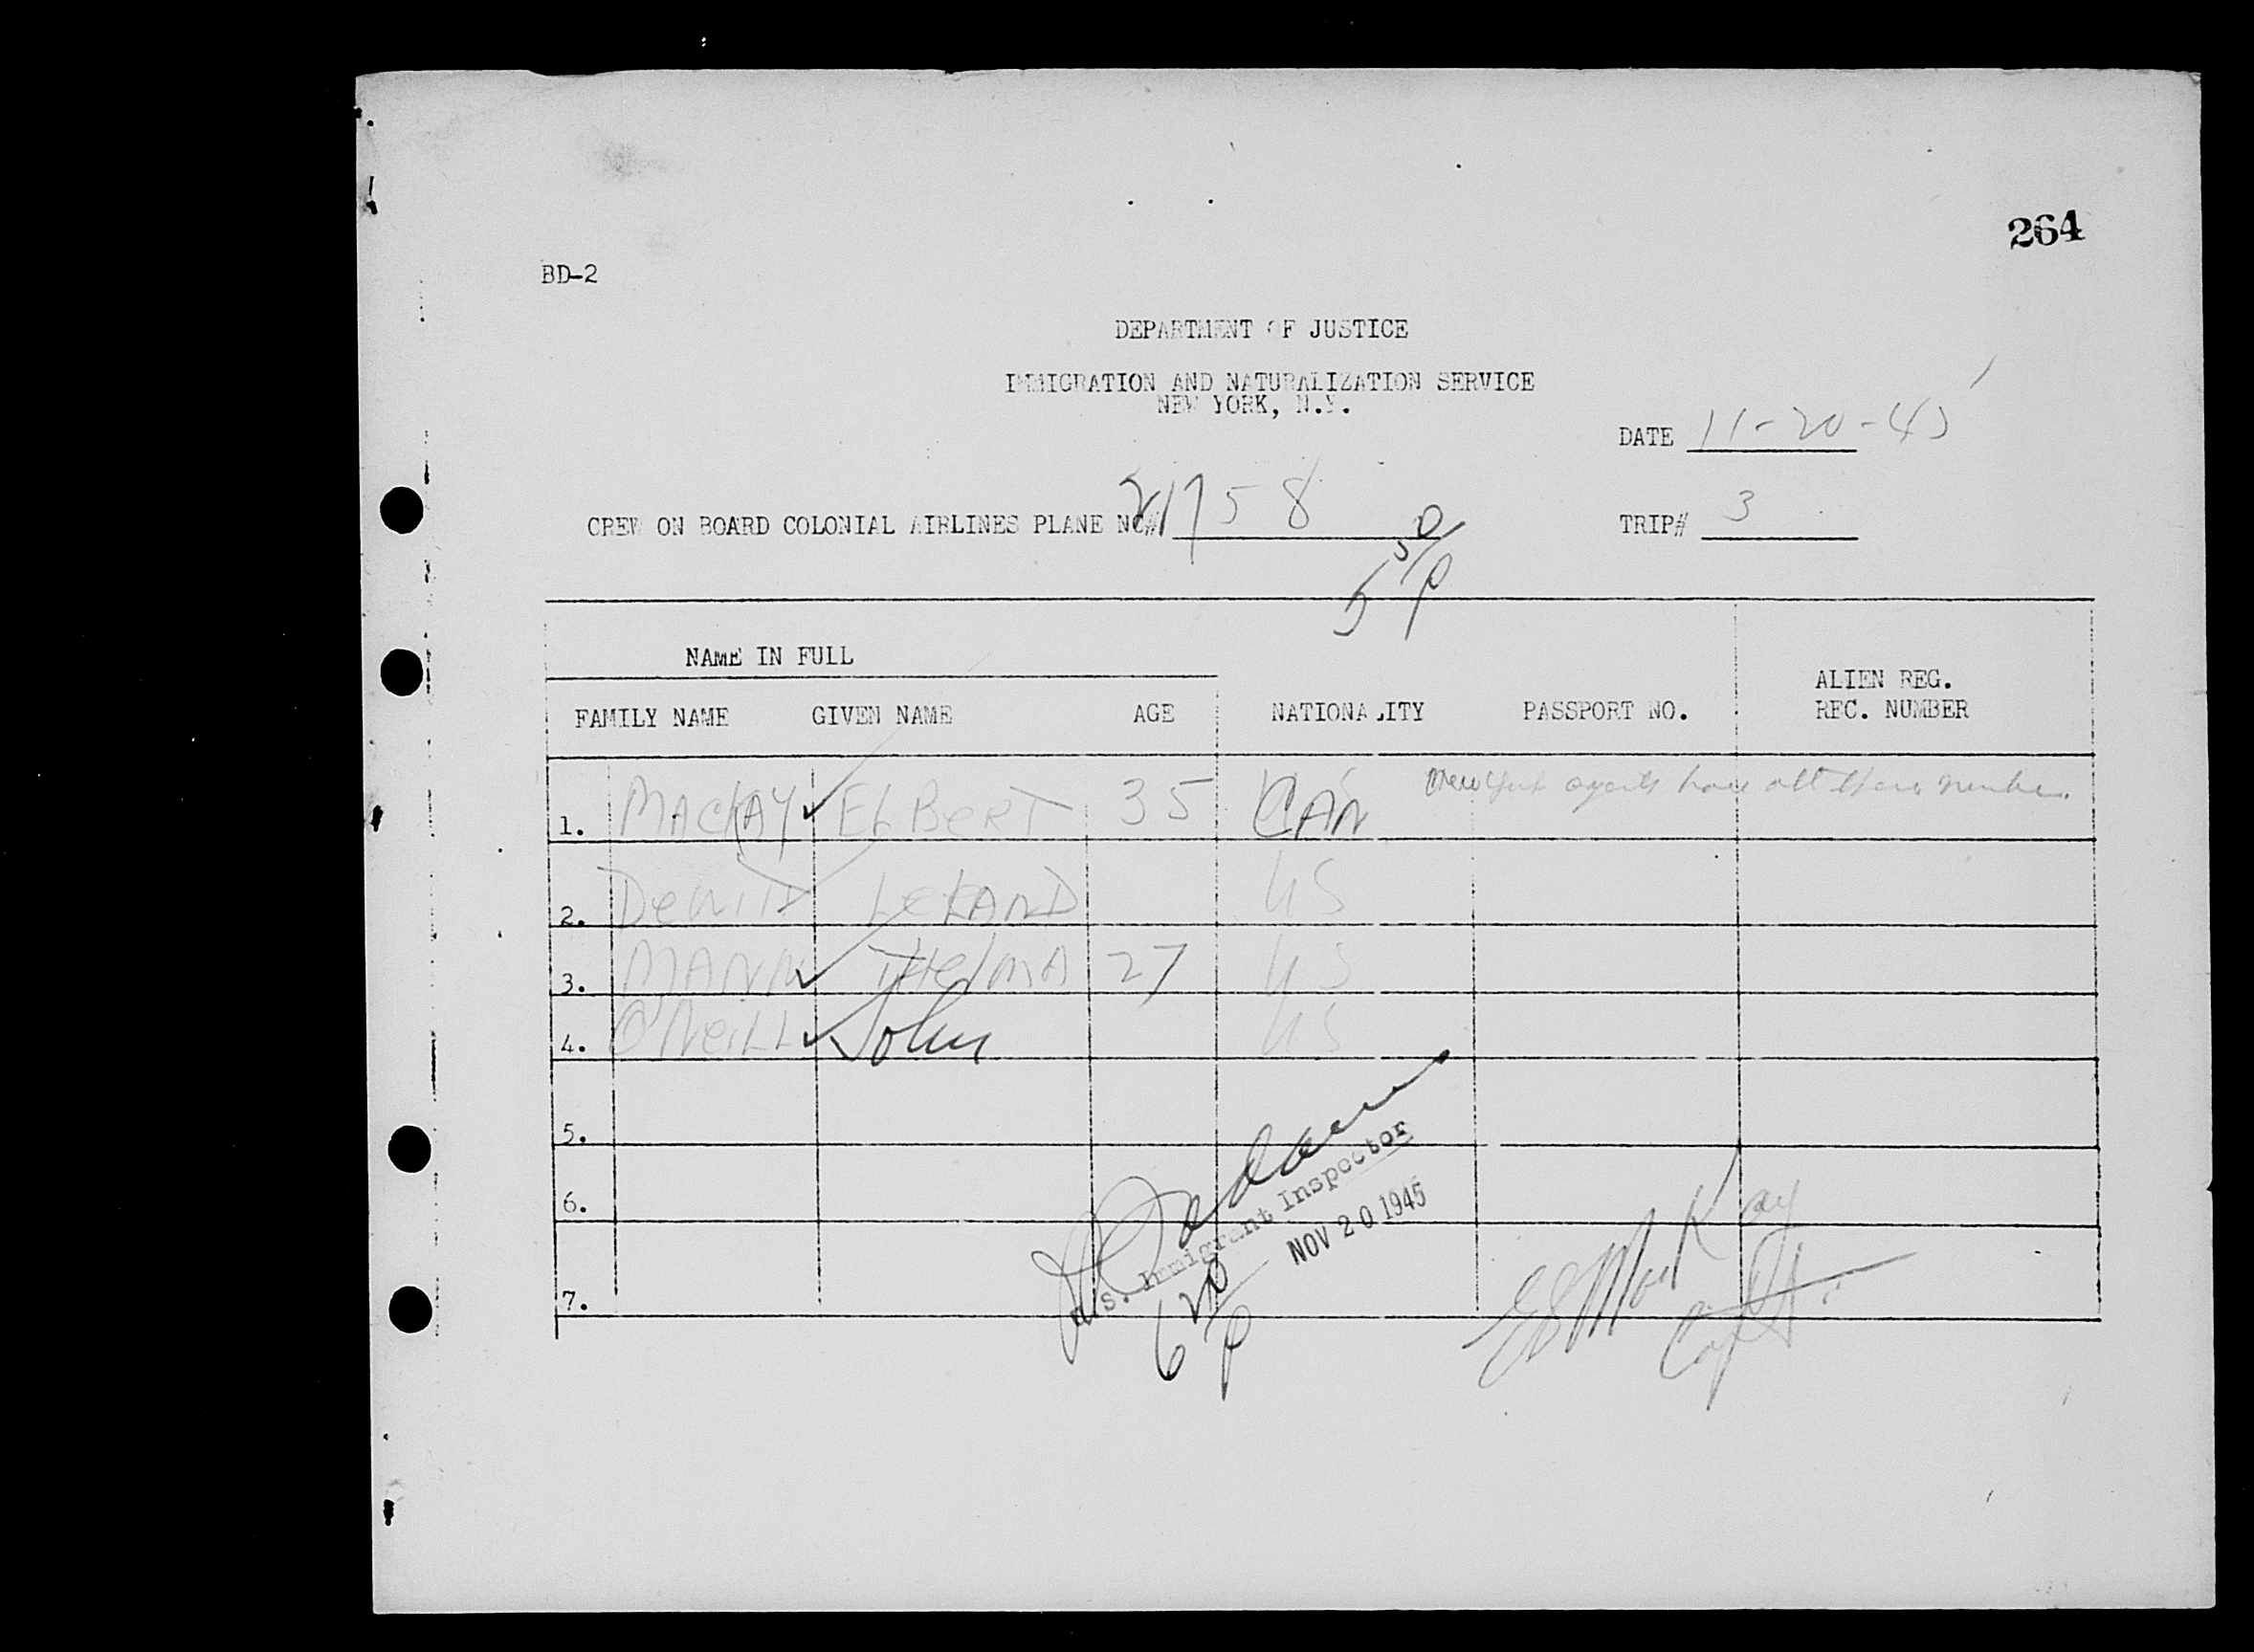 264
BD-2
DEPARTMENT OF JUSTICE
IMMIGRATION AND NATURALIZATION SERVICE
NEW YORK, N.Y.
DATE 11-20-45
CREW ON BOARD COLONIAL AIRLINES PLANE NO# 21758
TRIP# 3
5 50/P
NAME IN FULL
FAMILY NAME GIVEN NAME AGE NATIONALITY PASSPORT NO. ALIEN REG. REC. NUMBER
1. MACKAY ELBERT 35 CAN New York agents have all these numbers.
2. DeWITT LELAND US
3. MANN THELMA 27 US
4. O'NEILL John US
5.
6.
7.
U.S. Immigrant Inspector
NOV 20 1945
6 20/P
MacKay
Capt.